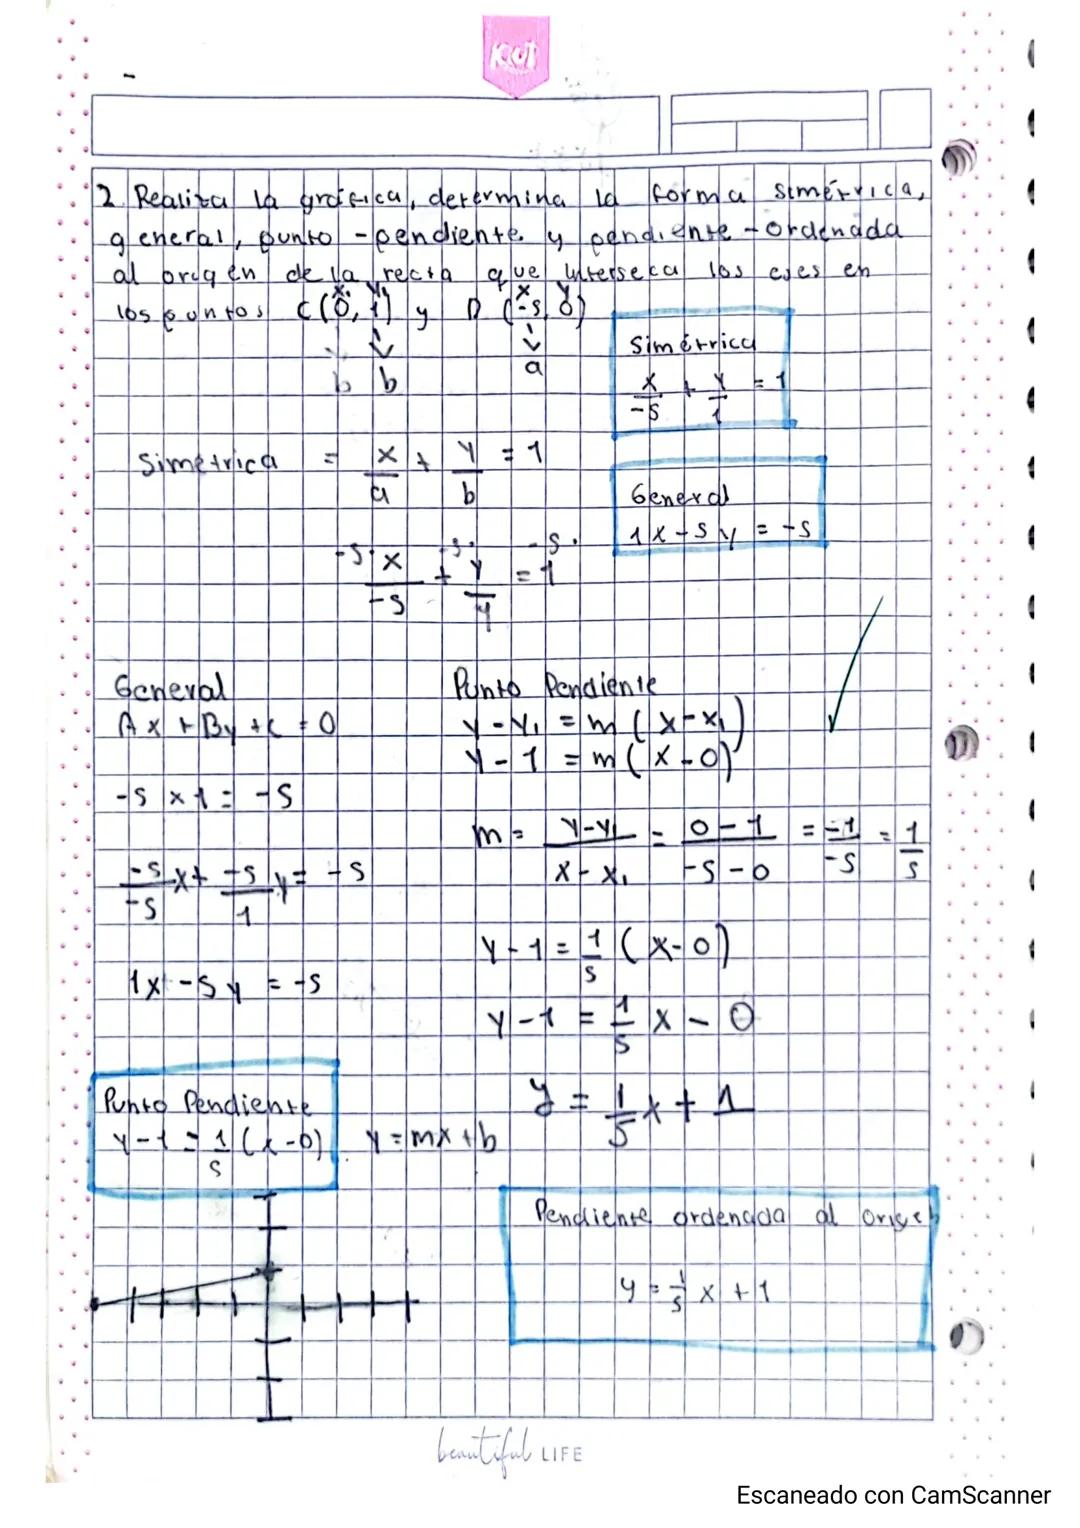 KIUT
2. Realiza la gráfica, determina la forma simétrica,
general, punto - pendiente y pendiente - ordenada
al origen de la recta que interseca los ejes en
los puntos C(0, 1) y D (-5, 0)
x y x y
b b a
Simétrica
x/-5 + y/1 = 1
Simetrica = x/a + y/b = 1
General
1x - 5y = -5
-5· x/-5 + -5· y/1 = 1 -5·
General
Ax + By + C = 0
-5 x 1 = -5
-5/-5 x + -5/1 y = -5
1x - 5y = -5
Punto Pendiente
y - y₁ = m (x - x₁)
y - 1 = m (x - 0)
m = y-y₁/x-x₁ = 0-1/-5-0 = -1/-5 = 1/5
y - 1 = 1/5 (x - 0)
y - 1 = 1/5 x - 0
y = 1/5 x + 1
Punto Pendiente
y - 1 = 1/5 (x - 0)
y = mx + b
Pendiente ordenada al origen
y = 1/5 x + 1
beautiful LIFE
Escaneado con CamScanner